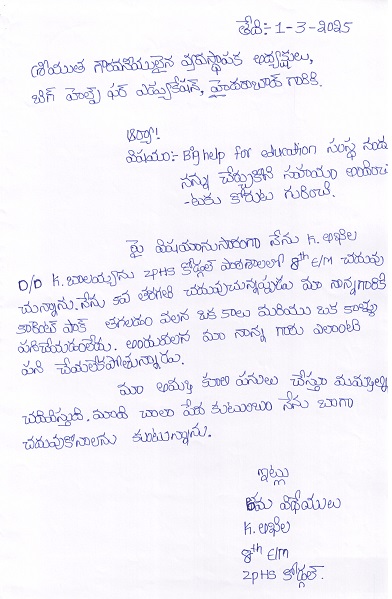 తేది:- 1-3-2025
శ్రీయుత గౌరవనీయులైన వ్యవస్థాపక అధ్యక్షులు,
బిగ్ హెల్ప్ ఫర్ ఎడ్యుకేషన్, హైదరాబాద్ గారికి.
ఆర్యా!
విషయం:- Big help for education సంస్థ నందు
నన్ను చేర్చుకొని సహాయం అందించ
-టకు కోరుట గురించి.
పై విషయానుసారంగా నేను K. అఖిల
D/O K. బాలయ్యను ZPHS కోడ్గల్ పాఠశాలలో 8th E/M చదువు
చున్నాను. నేను 5వ తరగతి చదువుచున్నప్పుడు మా నాన్నగారికి
కరెంట్ షాక్ తగలడం వలన ఒక కాలు మరియు ఒక కన్ను
పనిచేయడంలేదు. అందువలన మా నాన్న గారు ఎలాంటి
పని చేయలేకపోతున్నాడు.
మా అమ్మ కూలి పనులు చేస్తూ మమ్మల్ని
చదివిస్తుంది. మాది చాలా పేద కుటుంబం నేను బాగా
చదువుకోవాలను కుంటున్నాను.
ఇట్లు
తమ విధేయులు
K. అఖిల
8th E/M
ZPHS కోడ్గల్.